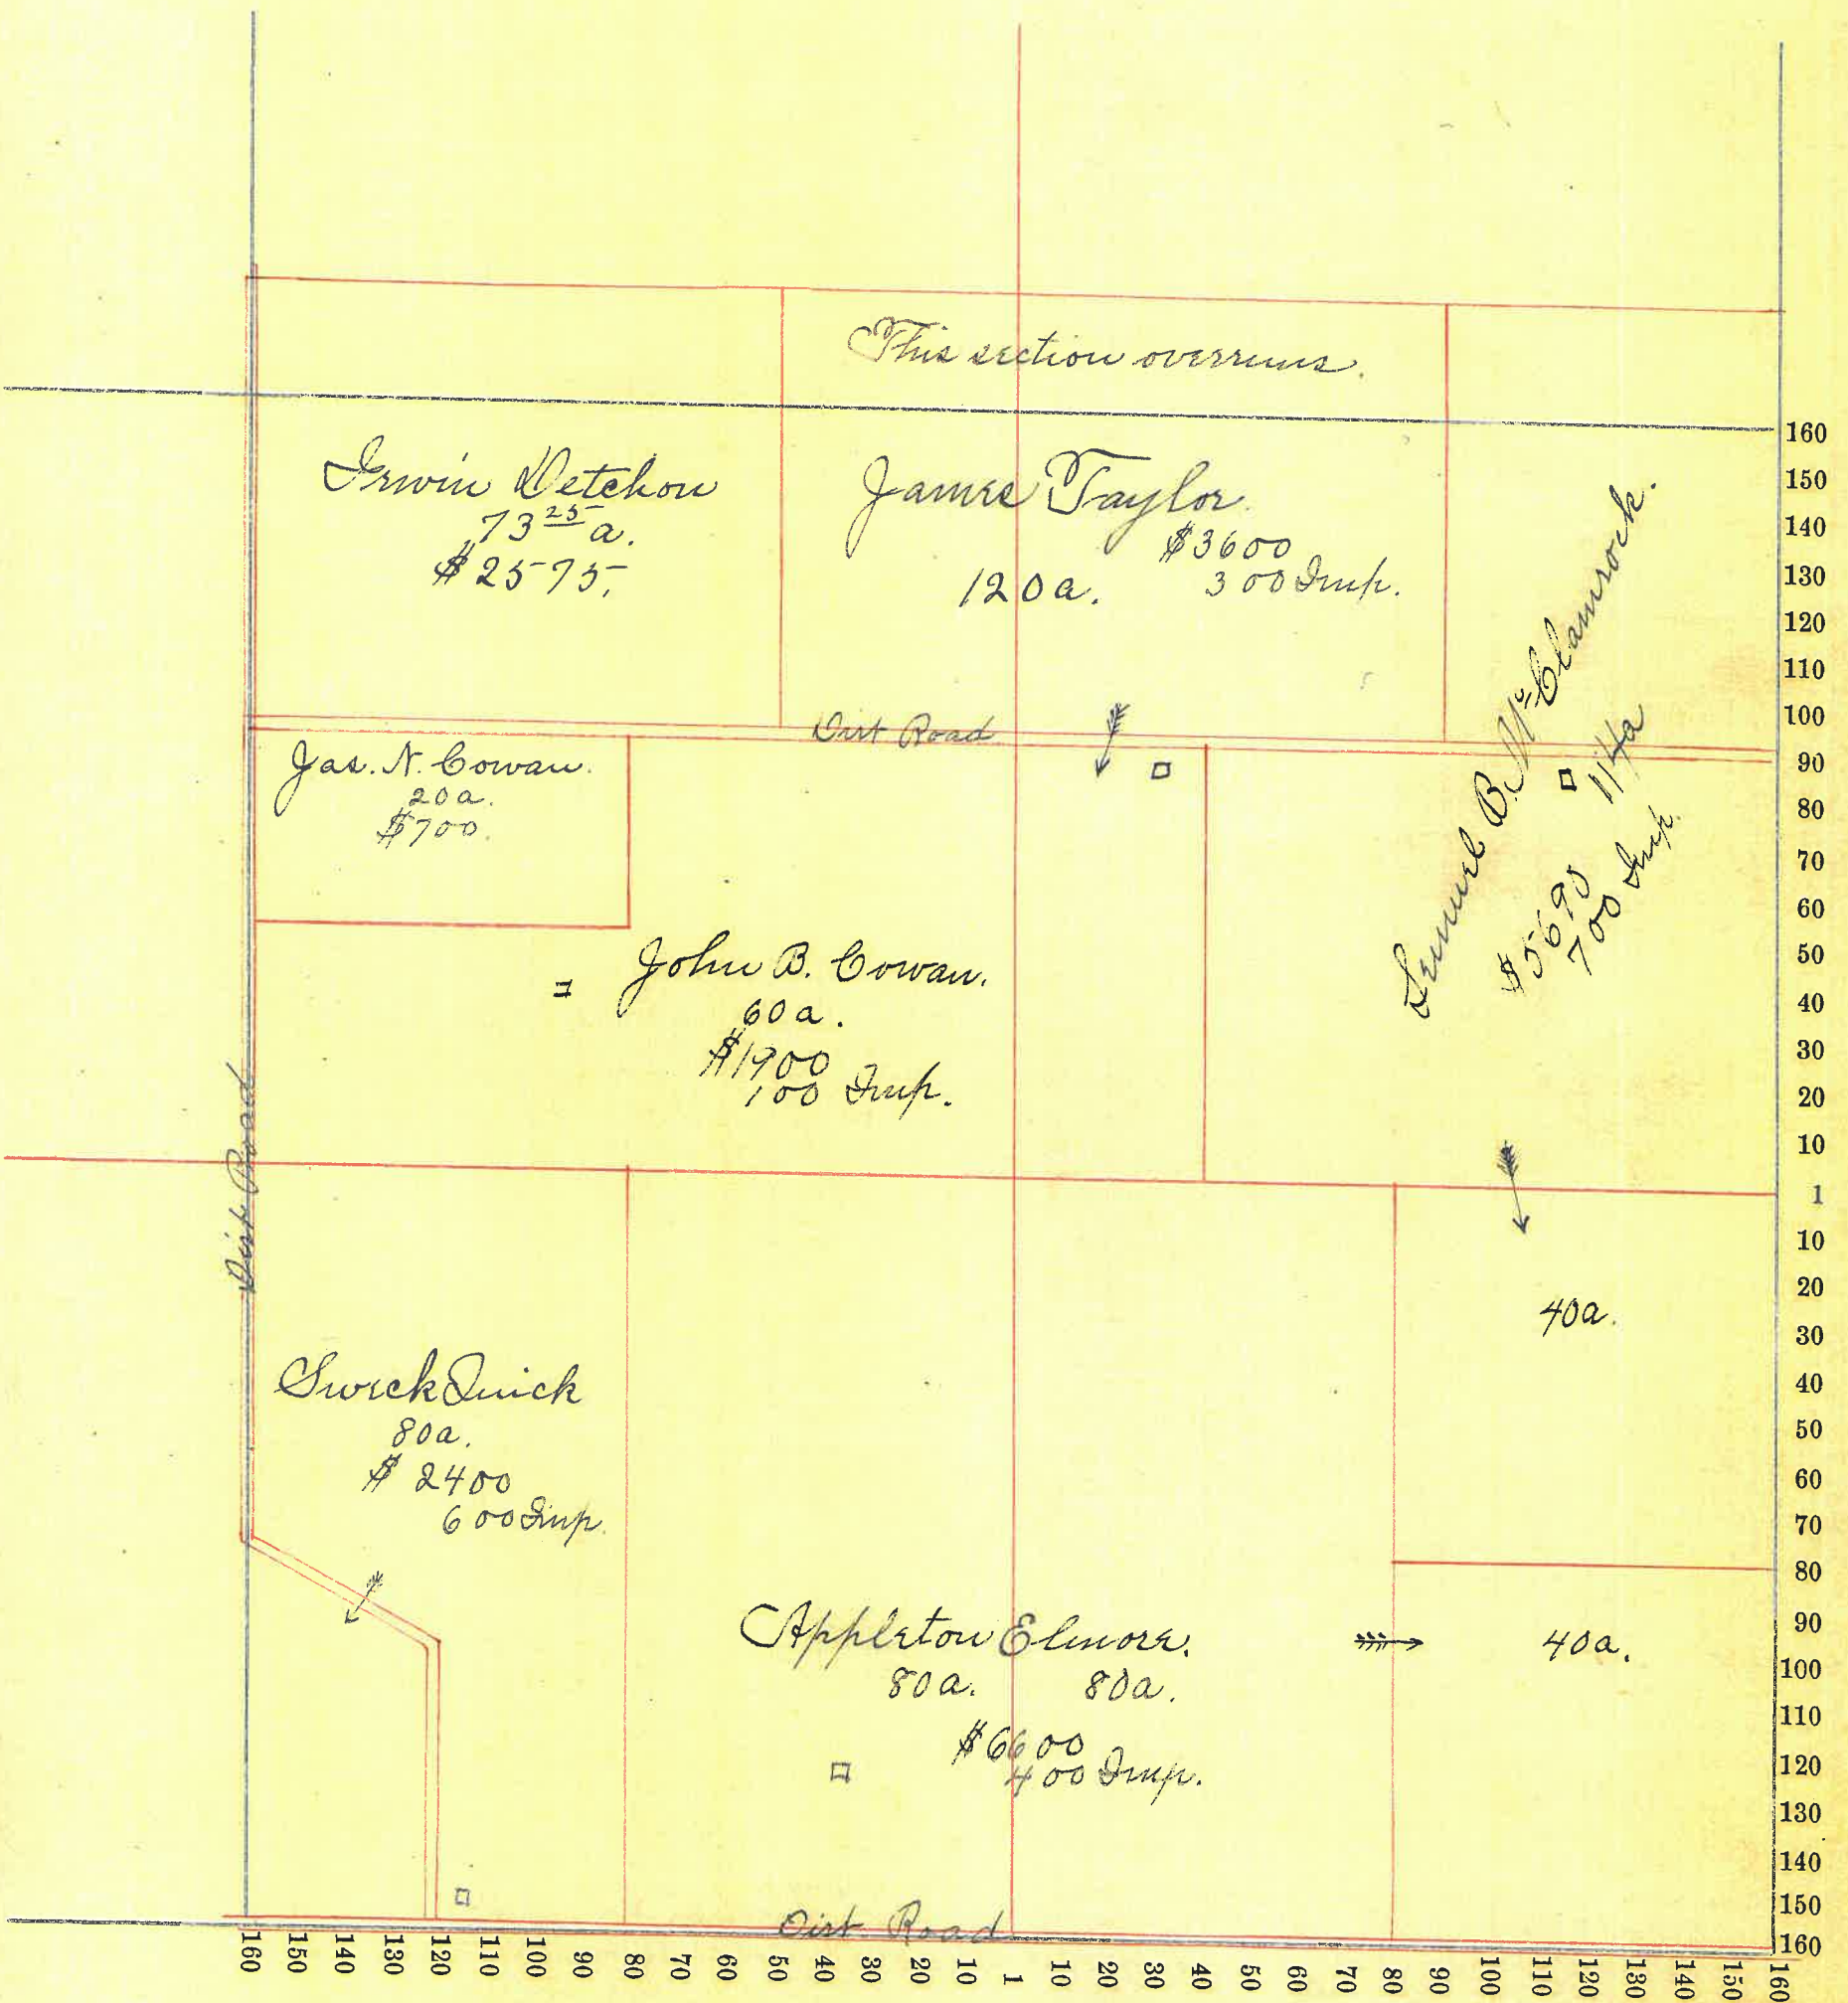 This section overruns.
Irwin Detchon
73 25 a.
$2575.
James Taylor.
$3600
120a. 300 Imp.
Dirt Road
Jas. N. Cowan.
20a.
$700.
Lemuel B. McClamrock.
114a
$5695
700 Imp.
John B. Cowan.
60a.
$1900
100 Imp.
Dirt Road
40a.
Swick Quick
80a.
$2400
600 Imp.
Appleton Elmore.
80a. 80a.
$6600
400 Imp.
40a.
Dirt Road
160
150
140
130
120
110
100
90
80
70
60
50
40
30
20
10
1
10
20
30
40
50
60
70
80
90
100
110
120
130
140
150
160
160 150 140 130 120 110 100 90 80 70 60 50 40 30 20 10 1 10 20 30 40 50 60 70 80 90 100 110 120 130 140 150 160